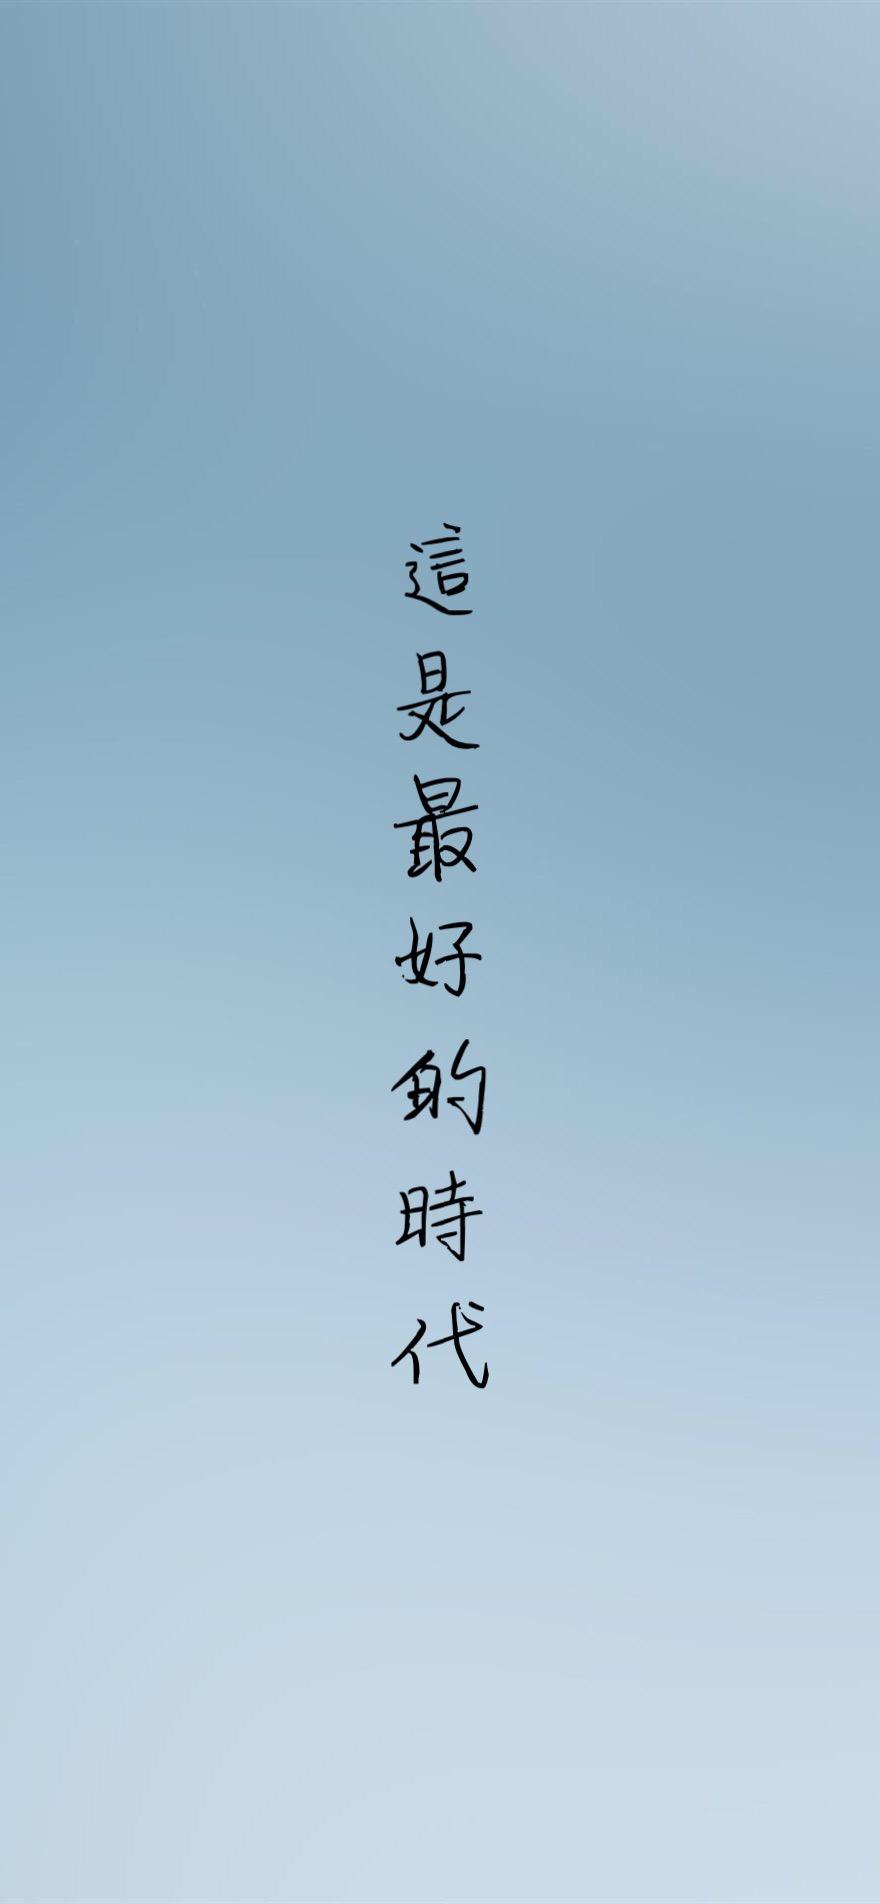 這是最好的時代